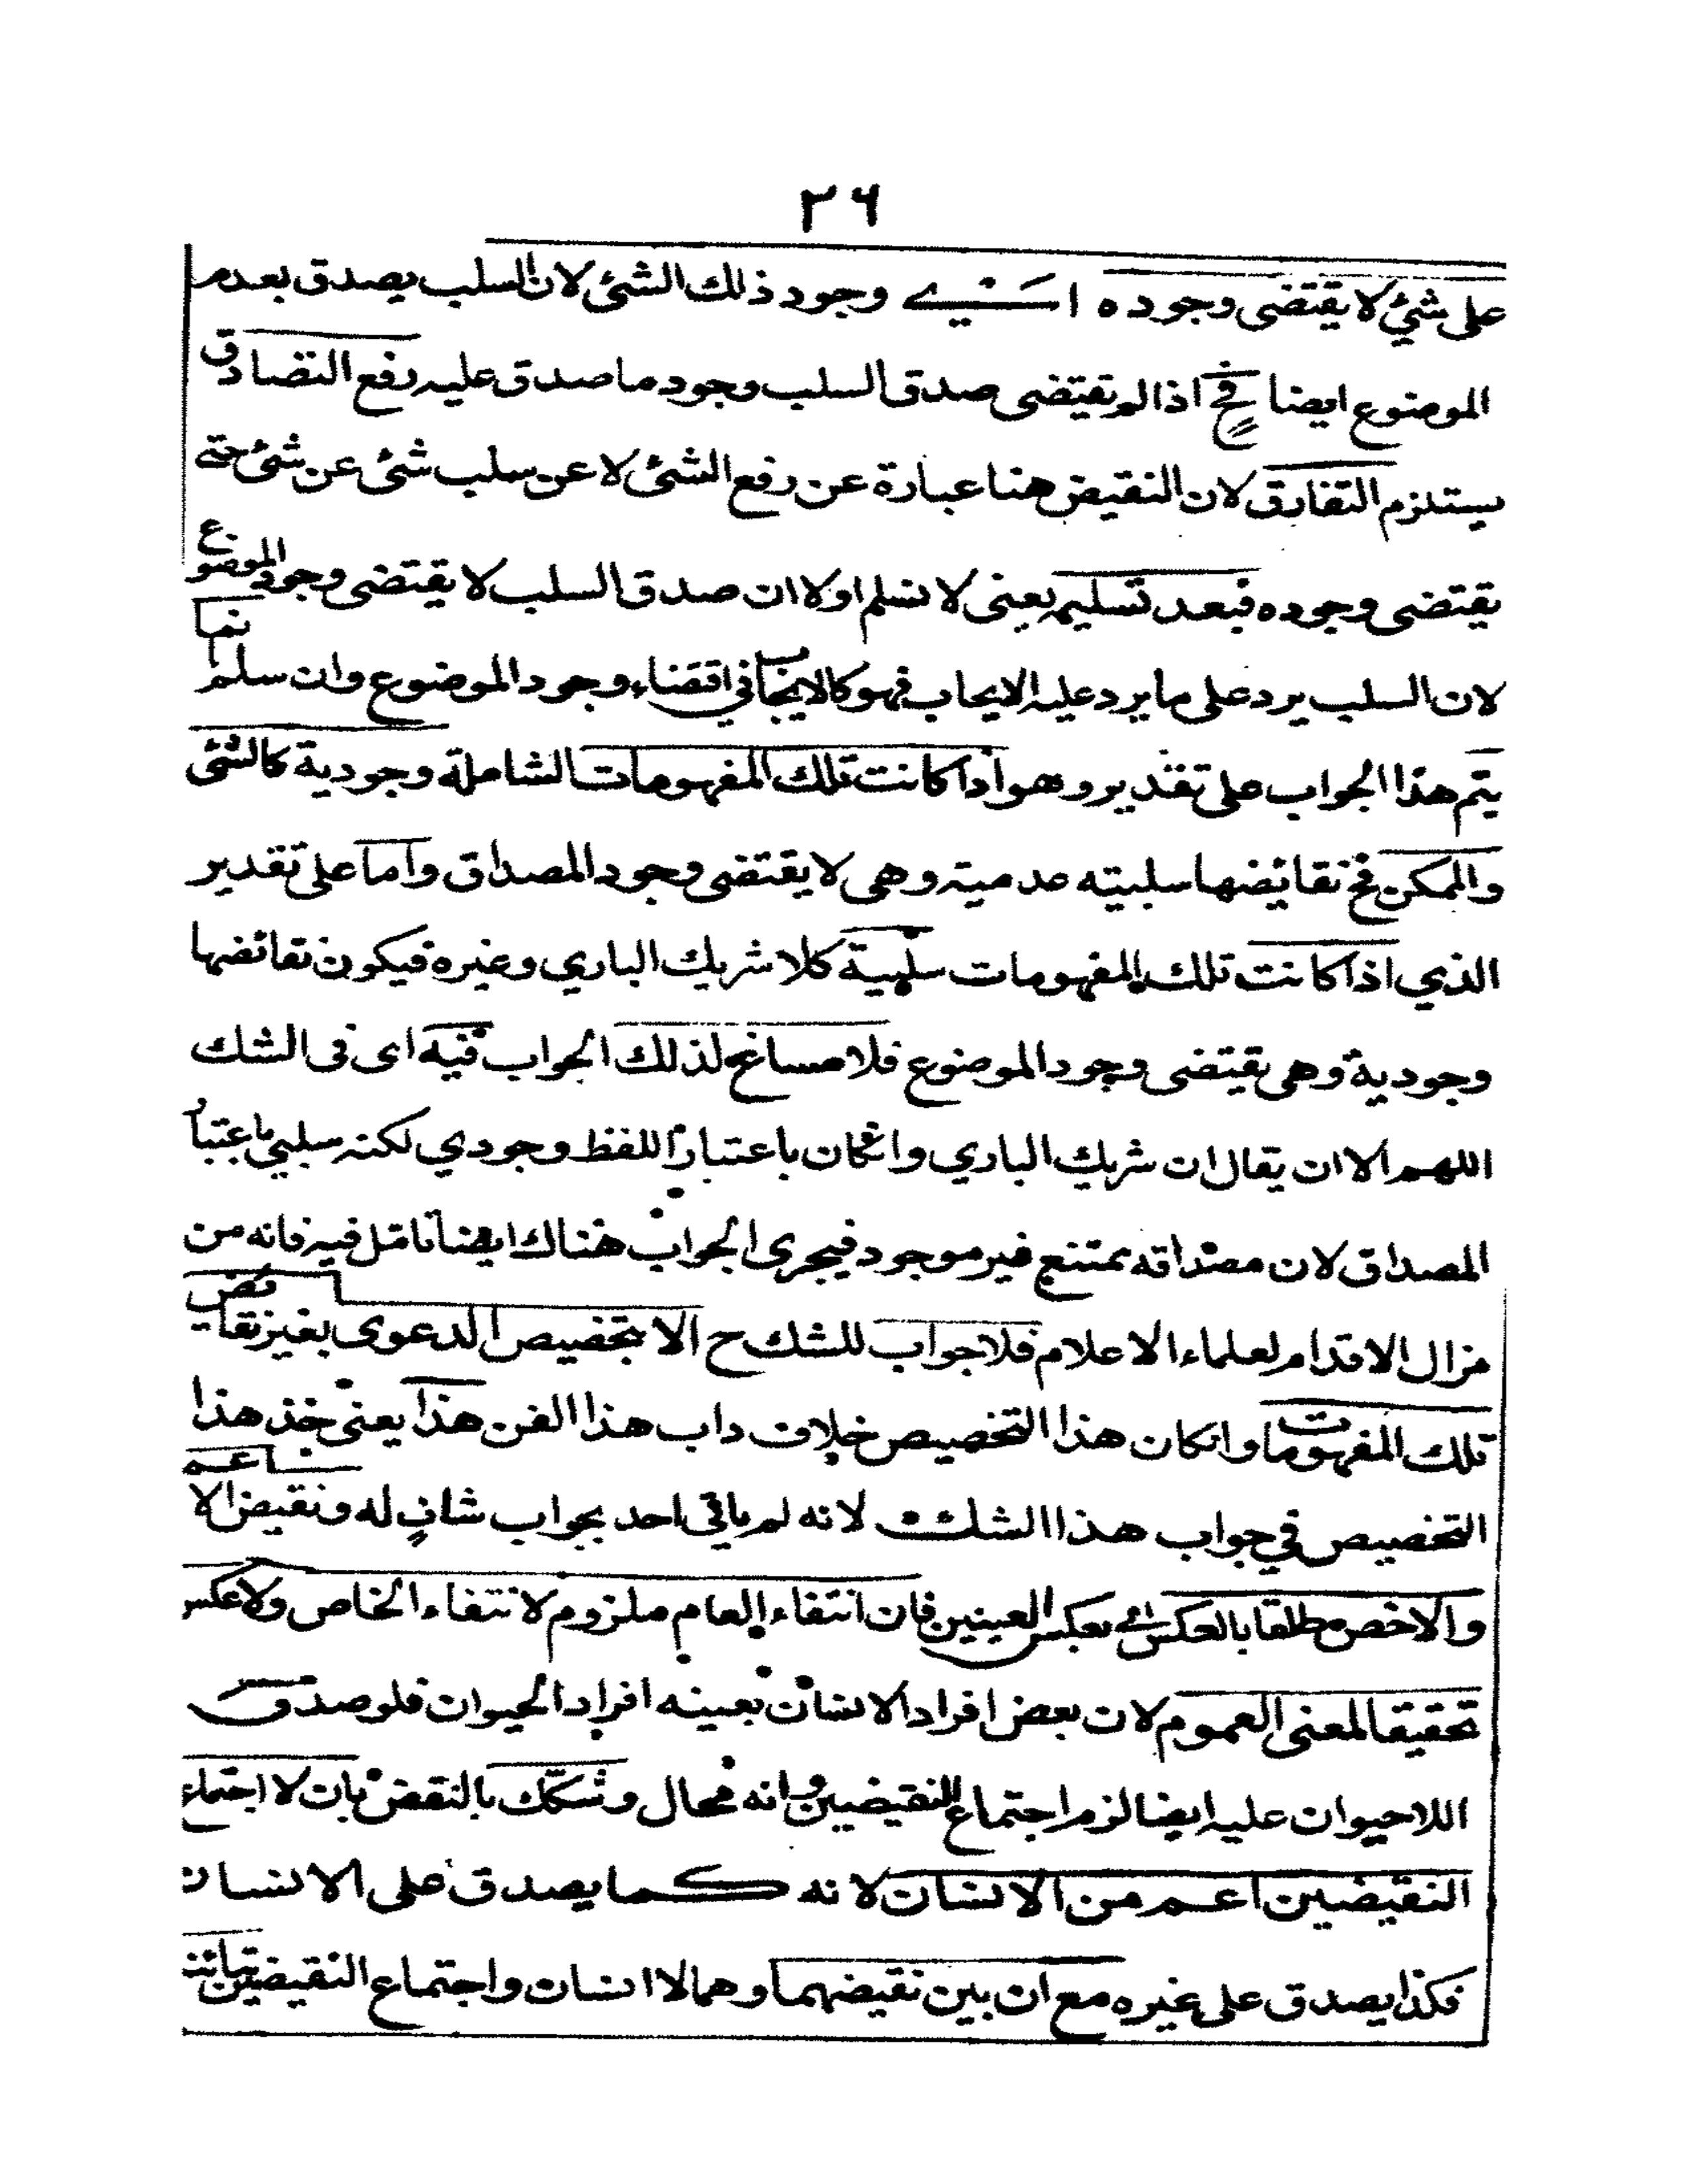 ٢٦
على شئ لا يقتضى وجوده اے وجود ذلك الشئ لان السلب يصدق بعدم
الموضوع ايضا فح اذا لم تقتضى صدق السلب وجود ما صدق عليه رفع التصادق
يستلزم التفارق لان النقيض هنا عبارة عن رفع الشئ لا عن سلب شئ عن شئ حتے
يقتضى وجوده فبعد تسليمه يعنى لا نسلم اولا ان صدق السلب لا يقتضى وجود الموضوع
لان السلب يرد على ما يرد عليه الايجاب فهو كالايجاب في اقتضاء وجود الموضوع وان سلم انما
يتم هذا الجواب على تقدير وهو اذا كانت تلك المفهومات الشاملة وجودية كالشئ
والممكن فح نقائضها سلبيته عدمية وهى لا يقتضى وجود المصداق واما على تقدير
الذي اذا كانت تلك المفهومات سلبية كلا شريك الباري وغيره فيكون نقائضها
وجودية وهى يقتضى وجود الموضوع فلا مساغ لذلك الجواب فيه اى فى الشك
اللهم الا ان يقال ان شريك الباري وانكان باعتبار اللفظ وجودي لكنه سلبي باعتبار
المصداق لان مصداقه ممتنع غير موجود فيجرى الجواب هناك ايضا تامّل فيه فانه من
مزال الاقدام لعلماء الاعلام فلا جواب للشك ح الا بتخصيص الدعوى بغير نقايض
تلك المفهومات وانكان هذا التخصيص خلاف داب هذا الفن هذا يعنى خذ هذا
التخصيص في جواب هذا الشك لانه لم ياتي احد بجواب شاف له ونقيض الاعم
والاخص مطلقا بالعكس اے بعكس العينين فان انتفاء العام ملزوم لانتفاء الخاص ولا عكس
تحقيقا لمعنى العموم لان بعض افراد الانسان بعينه افراد الحيوان فلو صدق
اللاحيوان عليه ايضا لزم اجتماع النقيضين وانه محال وشكّك بالنقض بان لا اجتماع
النقيضين اعم من الانسان لانه كما يصدق على الانسان
فكذا يصدق على غيره مع ان بين نقيضهما وهما لا انسان واجتماع النقيضين تبائنا